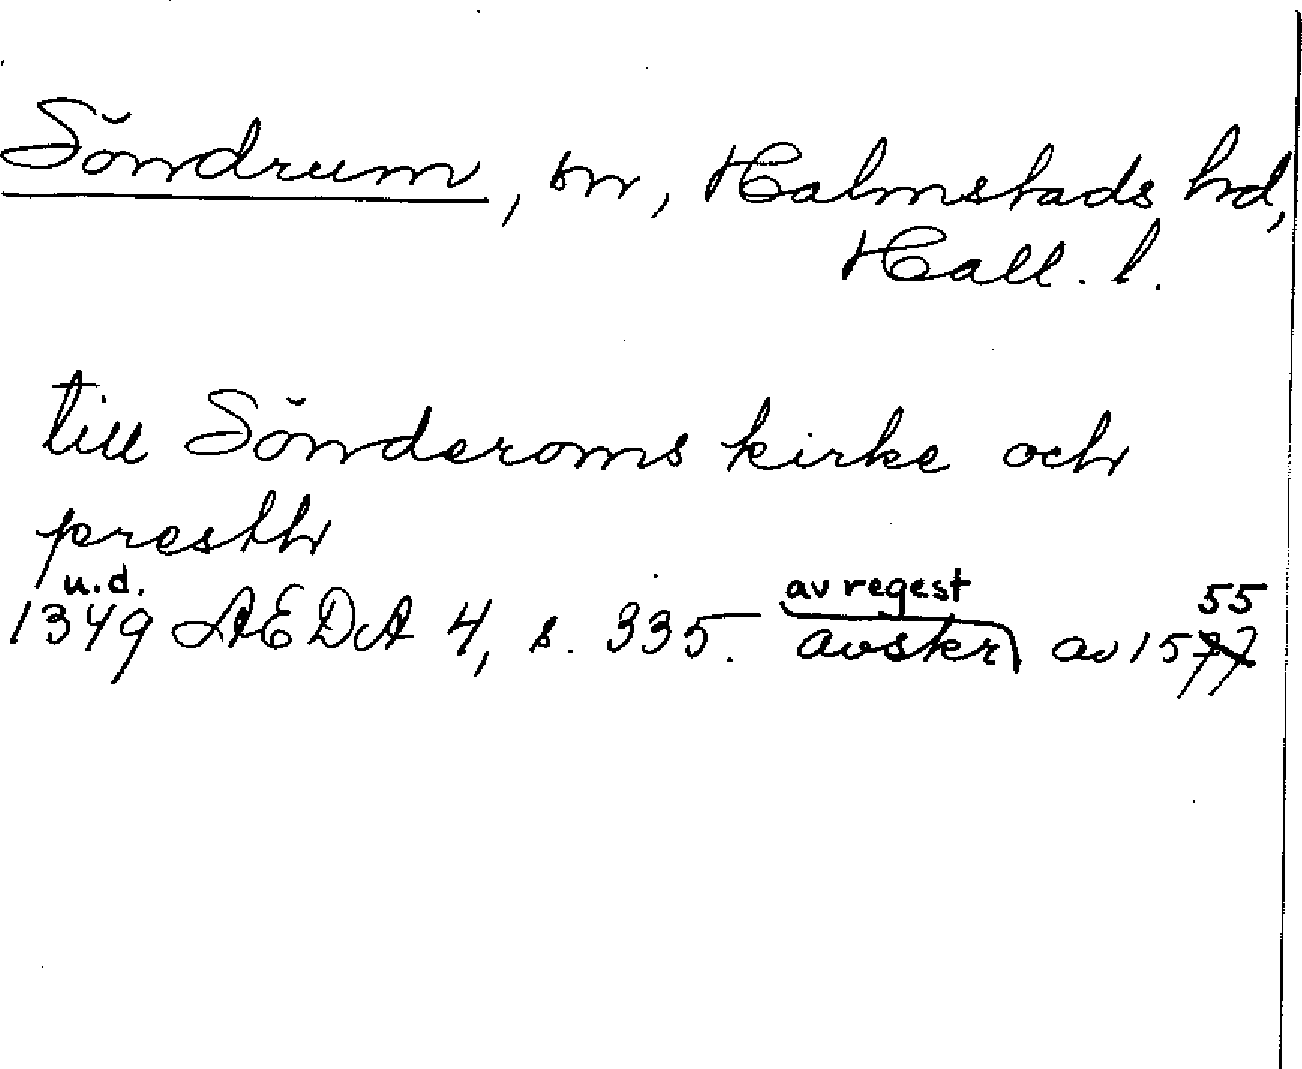 Söndrum, sn, Halmstads hd,
Hall. l.
till Sönderoms kirke och
presthr
u.d.
1349 ÆDA 4, s. 335. avskr av 1577
av regest 55